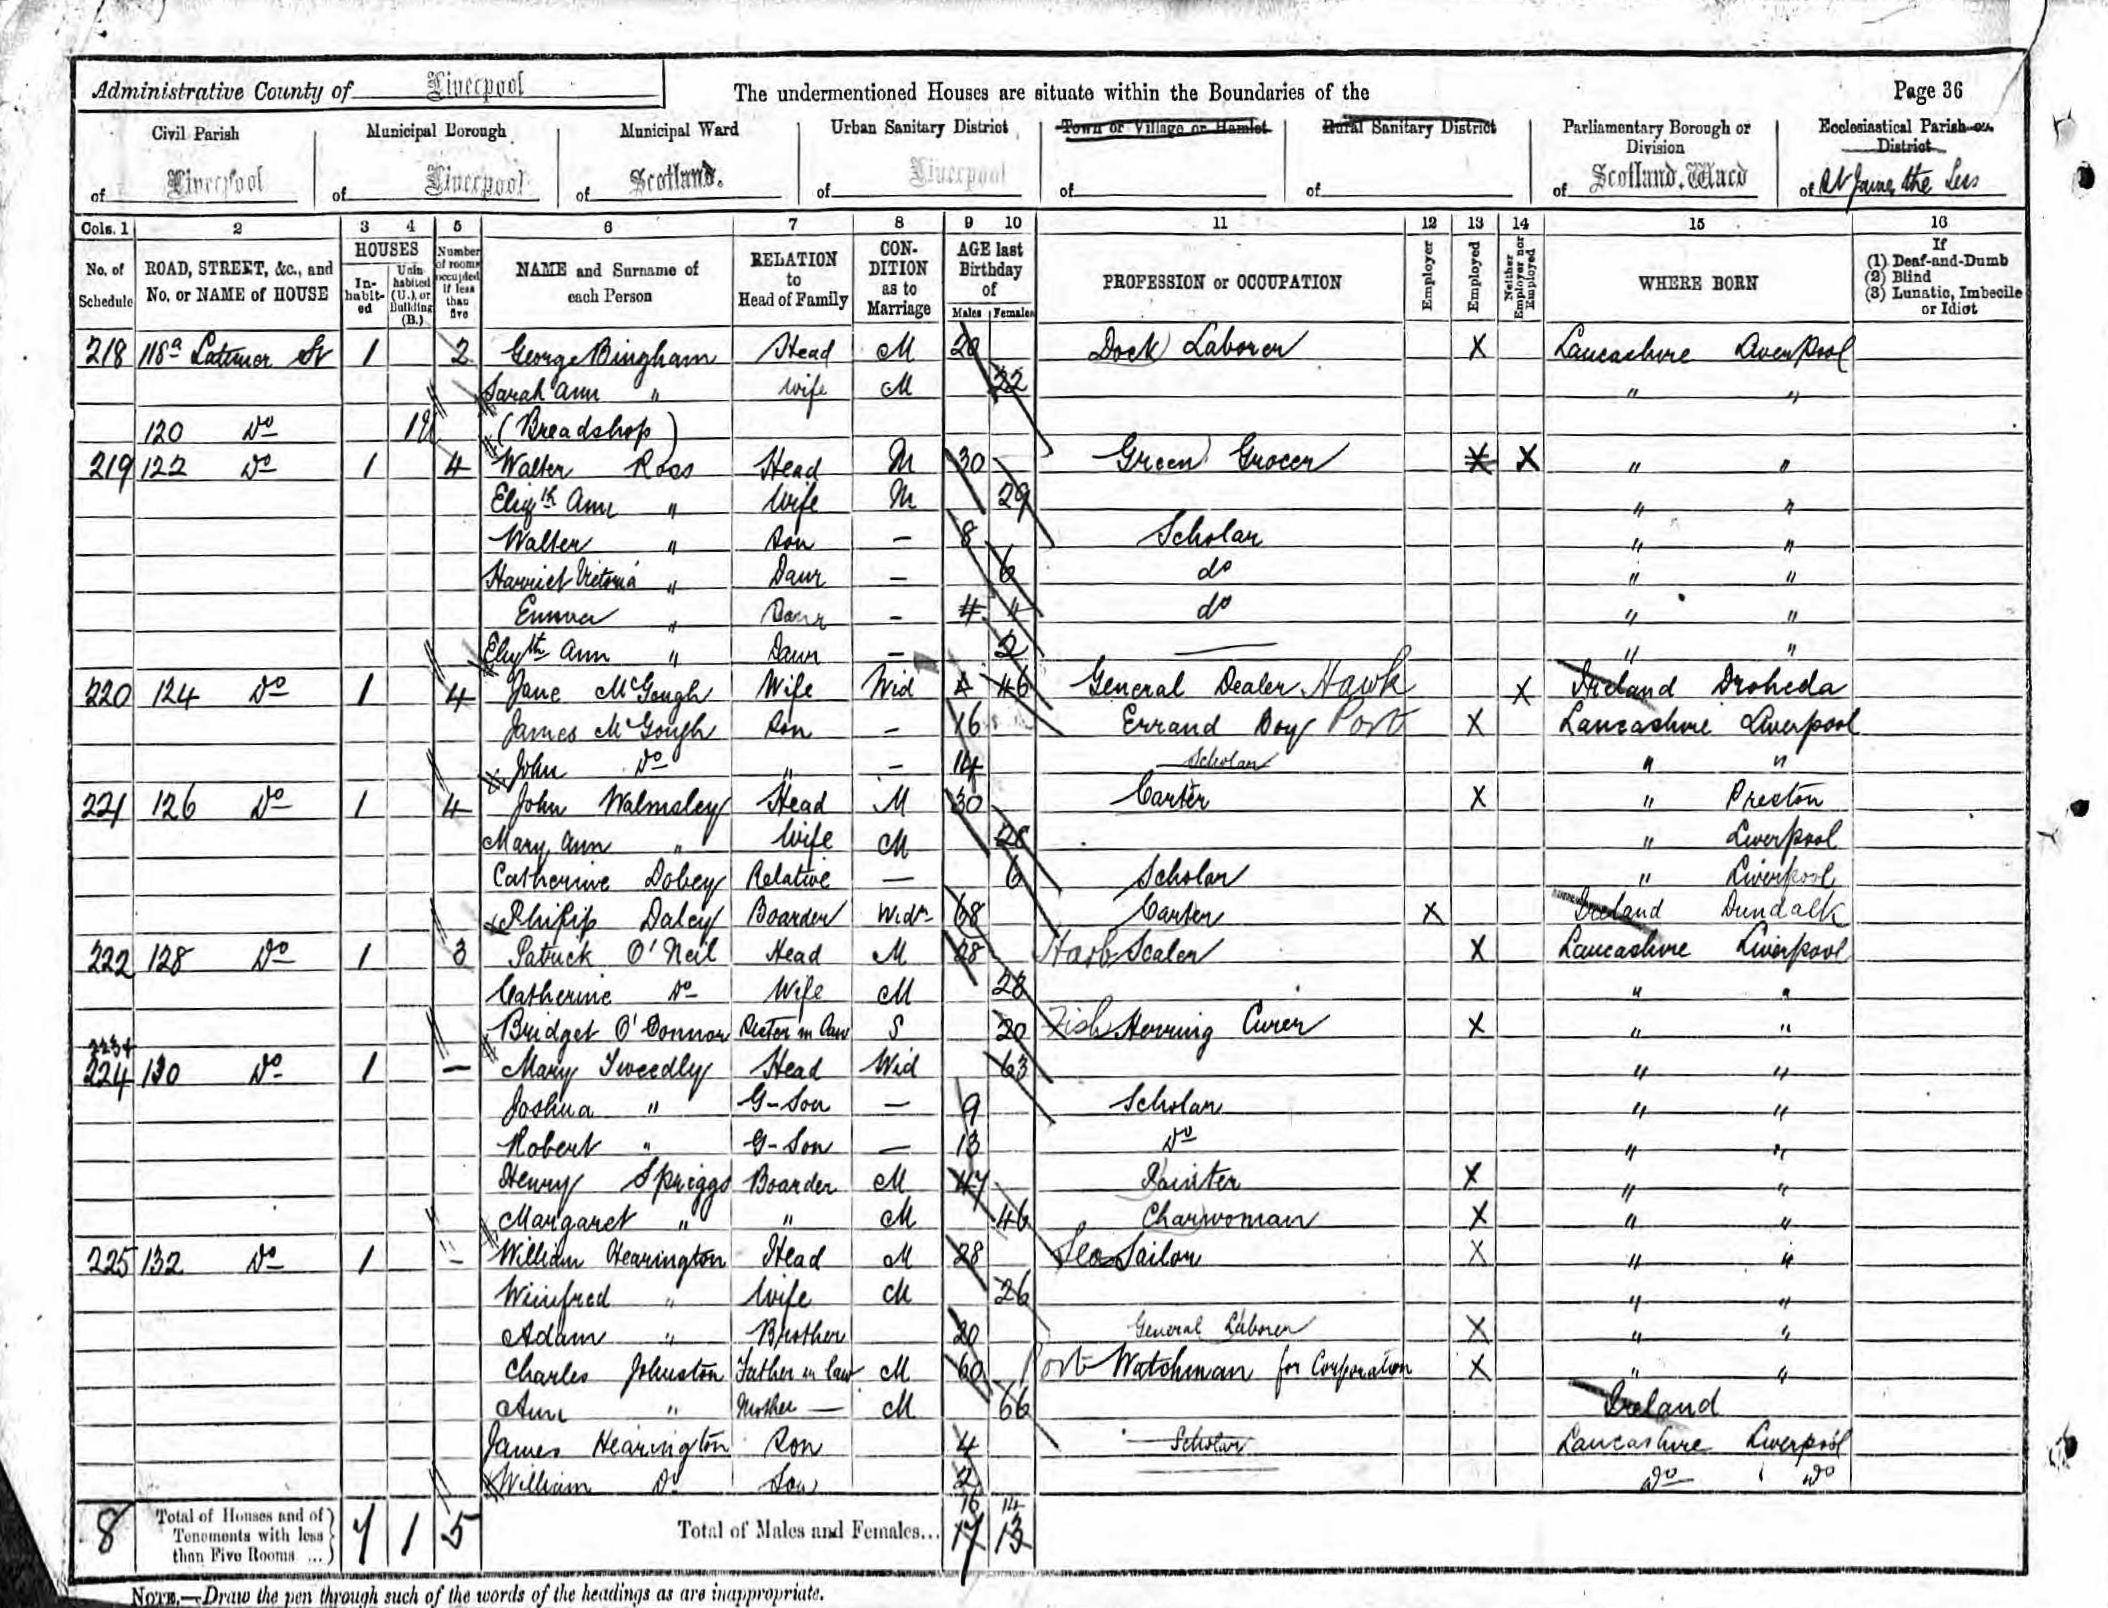 Administrative County of Liverpool The undermentioned Houses are situate within the Boundaries of the Page 36
Civil Parish Municipal Borough Municipal Ward Urban Sanitary District Town or Village or Hamlet Rural Sanitary District Parliamentary Borough or Division Ecclesiastical Parish or District
of Liverpool of Liverpool of Scotland. of Liverpool of of of Scotland. Ward of St James the Less
Cols. 1 2 3 4 5 6 7 8 9 10 11 12 13 14 15 16
No. of Schedule ROAD, STREET, &c., and No. or NAME of HOUSE HOUSES Inhabited Uninhabited (U.), or Building (B.) Number of rooms occupied if less than five NAME and Surname of each Person RELATION to Head of Family CONDITION as to Marriage AGE last Birthday of Males Females PROFESSION or OCCUPATION Employer Employed Neither Employer nor Employed WHERE BORN If (1) Deaf-and-Dumb (2) Blind (3) Lunatic, Imbecile or Idiot
218 118a Latimer St 1 2 George Bingham Head M 20 Dock Laborer X Lancashire Liverpool
Sarah Ann " Wife M 22 " "
120 Do (Breadshop)
219 122 Do 1 4 Walter Ross Head M 30 Green Grocer X X " "
Elizth Ann " Wife M 29 " "
Walter " Son – 8 Scholar " "
Harriet Victoria " Daur – 6 do " "
Emma " Daur – 4 " do " "
Elizth Ann " Daur – 2 — " "
220 124 Do 1 4 Jane McGough Wife Wid 46 General Dealer Hawk X Ireland Droheda
James McGough Son – 16 Errand Boy Port X Lancashire Liverpool
John Do " – 14 Scholar " "
221 126 Do 1 4 John Walmsley Head M 30 Carter X " Preston
Mary Ann " Wife M 28 " Liverpool
Catherine Dobey Relative — 6 Scholar " Liverpool
Philip Daley Boarder Widr 68 Carter X Ireland Dundalk
222 128 Do 1 3 Patrick O'Neil Head M 28 Harb Scaler X Lancashire Liverpool
Catherine Do Wife M 28 " "
Bridget O'Donnor Sister in Law S 20 Fish Herring Curer X " "
223 +
224 130 Do 1 – Mary Tweedly Head Wid 63 " "
Joshua " G-Son — 9 Scholar " "
Robert " G-Son — 13 Do " "
Henry Spriggs Boarder M 47 Painter X " "
Margaret " " M 46 Charwoman X " "
225 132 Do 1 – William Hearington Head M 28 Sea Sailor X " "
Winifred " Wife M 26 " "
Adam " Brother 20 General Laborer X " "
Charles Johnston Father in law M 60 Port Watchman for Corporation X " "
Ann " Mother — M 66 Ireland
James Hearington Son 4 Scholar Lancashire Liverpool
William Do Son 2 — Do Do
16 14
8 Total of Houses and of Tenements with less than Five Rooms ... 7 1 5 Total of Males and Females... 17 13
NOTE.—Draw the pen through such of the words of the headings as are inappropriate.